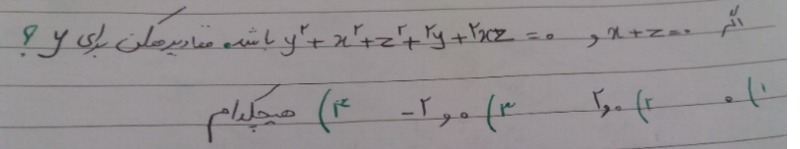 اگر x+z=۰ و y²+x²+z²+۲y+۲xz=۰ باشد مقادیر ممکن برای y ؟
۱) ۰ ۲) ۰ و ۲ ۳) ۰ و ۲- ۴) هیچکدام